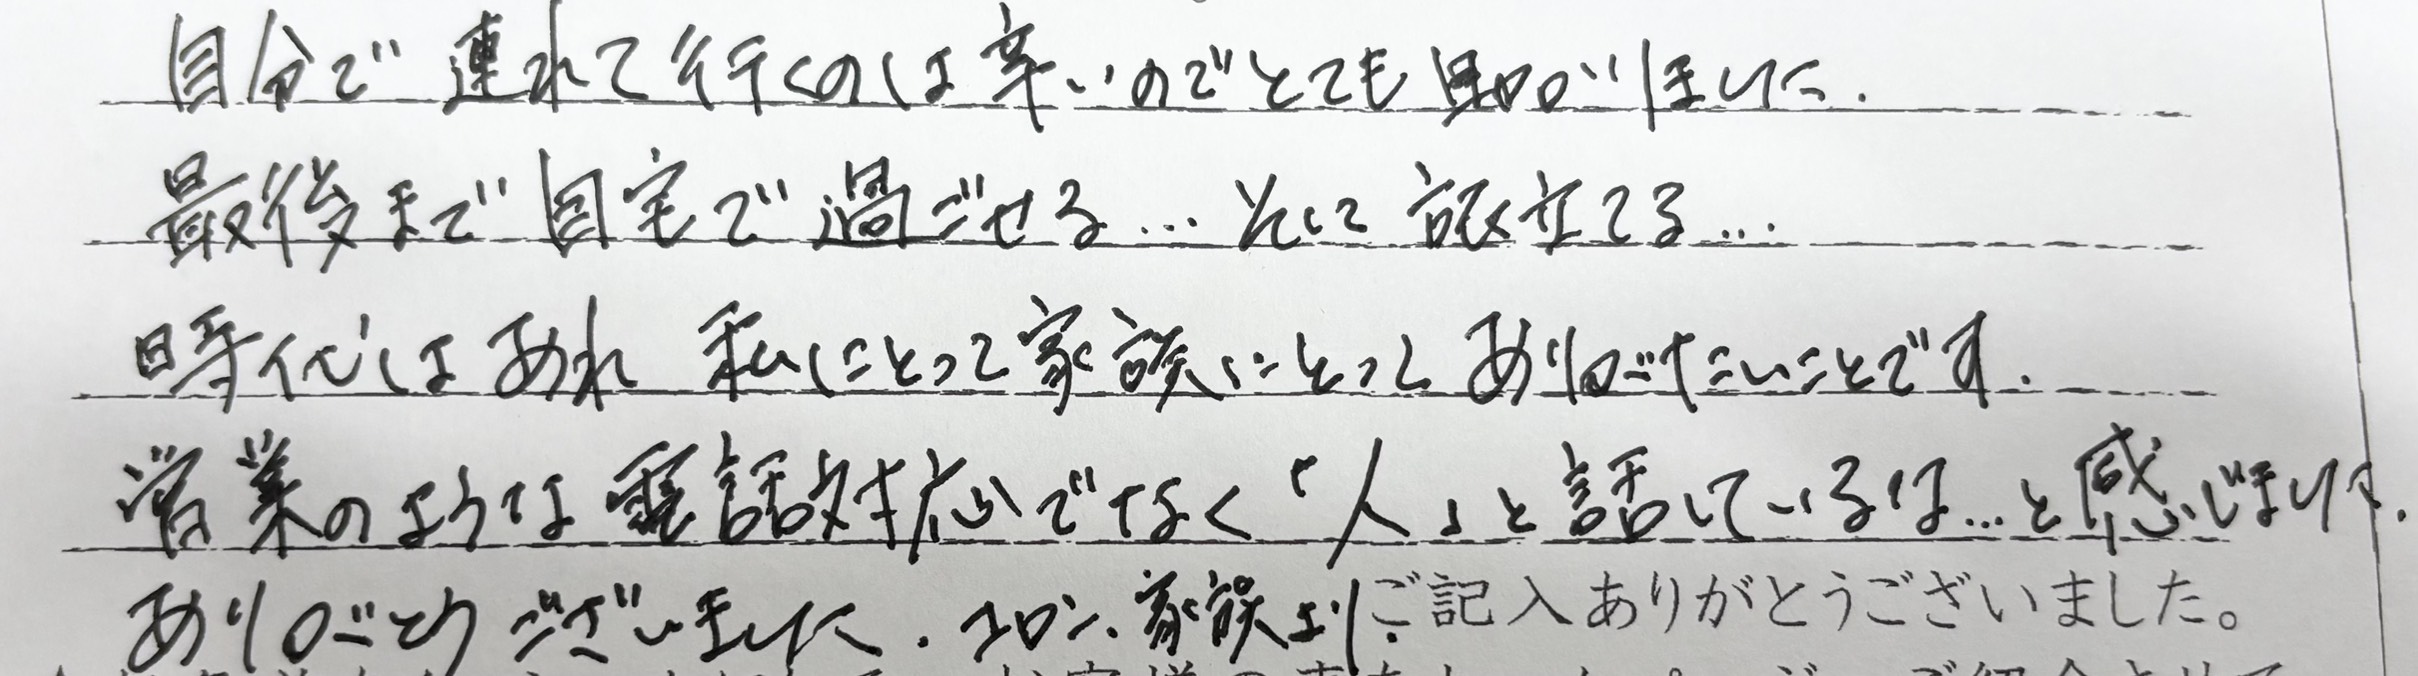 自分で連れて行くのは辛いのでとても助かりました.
最後まで自宅で過ごせる... そして旅立てる...
時代はあれ 私にとって家族にとって ありがたいことです.
営業のような電話対応でなく「人」と話しているは...と感じました.
ありがとうございました. コロン、家族より.
ご記入ありがとうございました。